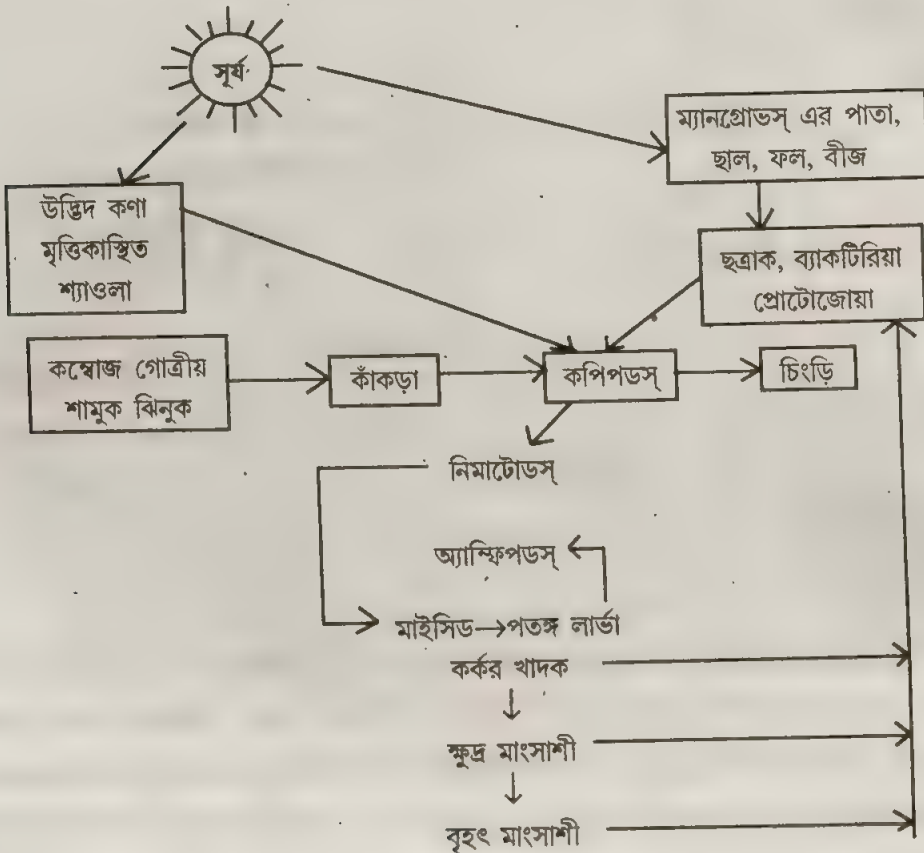 সূর্য
ম্যানগ্রোভস্ এর পাতা,
ছাল, ফল, বীজ
উদ্ভিদ কণা
মৃত্তিকাস্থিত
শ্যাওলা
ছত্রাক, ব্যাকটিরিয়া
প্রোটোজোয়া
কম্বোজ গোত্রীয়
শামুক ঝিনুক
কাঁকড়া
কপিপডস্
চিংড়ি
নিমাটোডস্
অ্যাম্ফিপডস্
মাইসিড→পতঙ্গ লার্ভা
কর্কর খাদক
ক্ষুদ্র মাংসাশী
বৃহৎ মাংসাশী